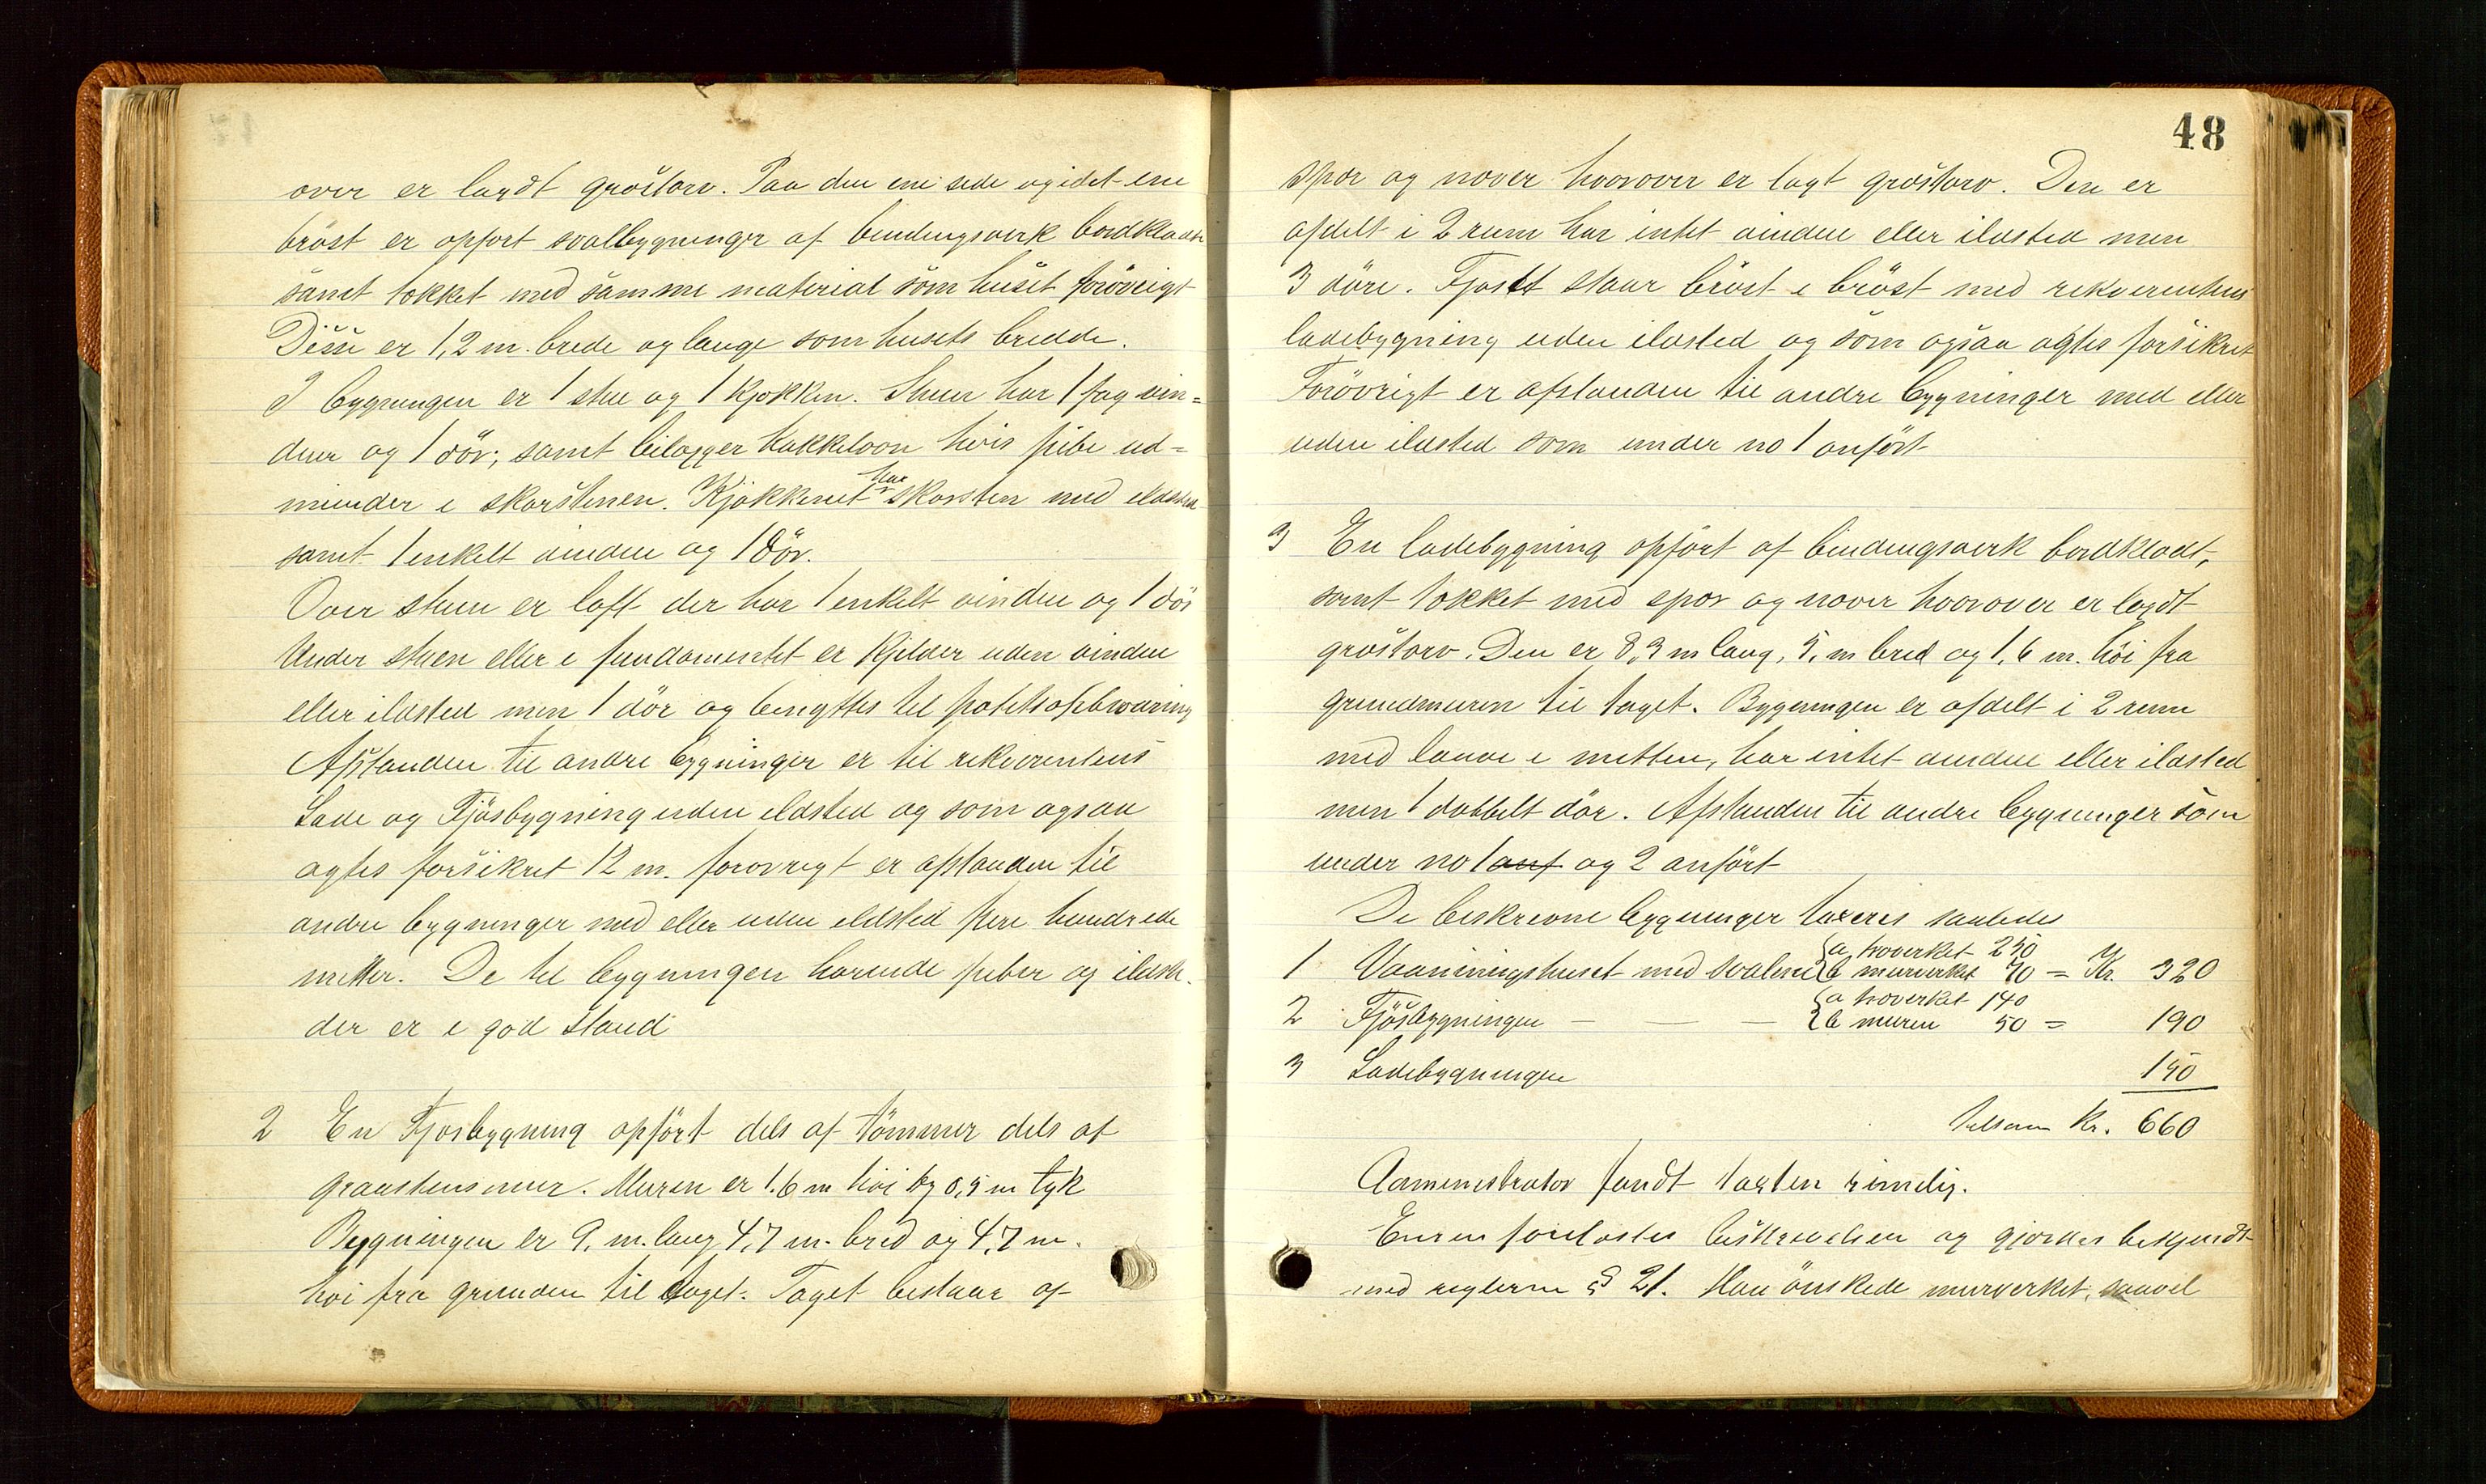 over er lagdt gröstorv. Paa den ene side og i det ene
bröst er opfort svalbygninger af bindingsverk bordklædt
samt tækket med samme material som huset forövrigt
Disse er 1,2 m. brede og lange som husets bredde.
I bygningen er 1 stue og 1 kjøkken. Stuen har 1 fag vin=
duer og 1 dör, samt bilægger kakkelovn hvis pibe ud=
munder i skorstenen. Kjøkkenet har skorsten med ildsted
samt 1 enkelt vindue og 1 dör.
Over stuen er loft der har 1 enkelt vindue og 1 dör
Under stuen eller i fundamentet er kjelder uden vindue
eller ildsted men 1 dör og benyttes til potetopbevaring
Afstanden til andre bygninger er til rekvirentens
Lade og Fjösbygning uden ildsted og som ogsaa
agtes forsikret 12 m. forovrigt er afstanden til
andre bygninger med eller uden ildsted flere hundrede
metter. De til bygningen hørende piber og ildste-
der er i god stand

2 En Fjosbygning opført dels af tömmer dels af
graastensmur. Muren er 1.6 m höi og 0,5 m tyk
Bygningen er 9. m. lang 4,7 m. bred og 4,7 m.
höi fra grunden til taget. Taget bestaar af

48
spor og nover hvorover er lagt gröstorv. Den er
afdelt i 2 rum har intet vindue eller ildsted men
3 döre. Fjøset staar bröst i bröst med rekvirentens
ladebygning uden ildsted og som ogsaa agtes forsikret
Forövrigt er afstanden til andre bygninger med eller
uden ildsted som under no 1 anført

3 En ladebygning opfört af bindingsverk bordklædt,
samt tækket med spor og nover hvorover er lagdt
gröstorv. Den er 8,3 m lang, 5, m bred og 1,6 m. höi fra
grundmuren til taget. Bygningen er afdelt i 2 rum
med laave i mitten, har intet vindue eller ildsted
men 1 dobbelt dör. Afstanden til andre bygninger som
under no 1 anf og 2 anfört
De beskrevne bygninger taxeres saaledes
1 Vaaningshuset med svalene {a troverket 250 b murverket 70 = Kr. 320
2 Fjösbygningen — — — {a troverket 140 b muren 50 = 190
3 Ladebygningen 150
tilsam Kr. 660
Administrator fandt taxten rimelig.
Eieren forelæstes beskrivelsen og gjordes bekjendt
med reglerne § 21. Han önskede murverket, saavel